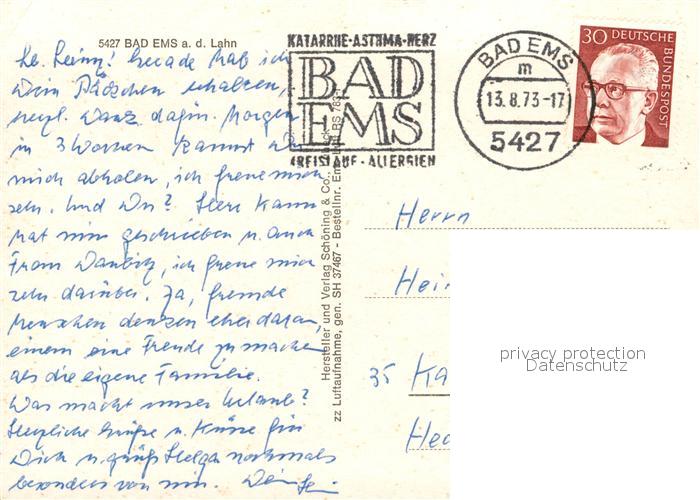 5427 BAD EMS a. d. Lahn
KATARRHE·ASTHMA·HERZ
BAD
EMS
KREISLAUF·ALLERGIEN
BAD EMS
m
13.8.73-17
5427
30 DEUTSCHE
BUNDESPOST
Hersteller und Verlag Schöning & Co.,
zz Luftaufnahme, gen. SH 37467 - Bestellnr. Em
Gerade hab ich
Dein Päckchen erhalten,
herzl. Dank dafür. Morgen
in 3 Wochen kannst du
mich abholen, ich freue mich
sehr. Und Du? Herr
hat mir geschrieben u. auch
ich freue mich
sehr darüber. Ja, fremde
Menschen denken eher daran,
einem eine Freude zu machen
als die eigene Familie.
Was macht unser Urlaub?
Herzliche Grüße u. Küsse für
Dich u. grüß Helga nochmals
besonders von mir.
Herrn
Hei
35 Ka
privacy protection
Datenschutz